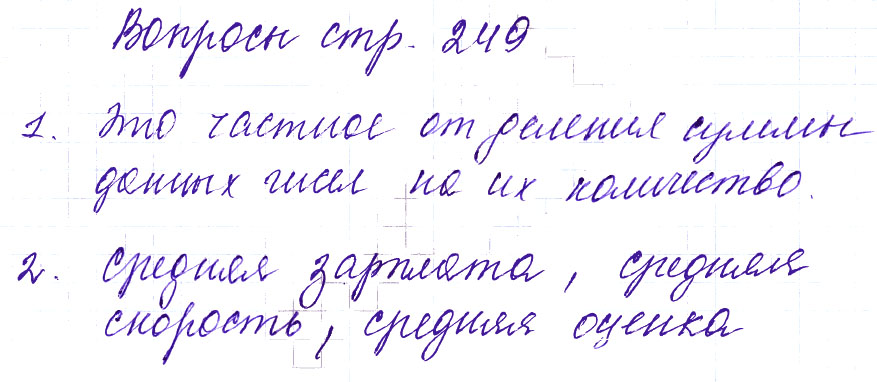 Вопросы стр. 249
1. Это частное от деления суммы
данных чисел на их количество.
2. Средняя зарплата, средняя
скорость, средняя оценка